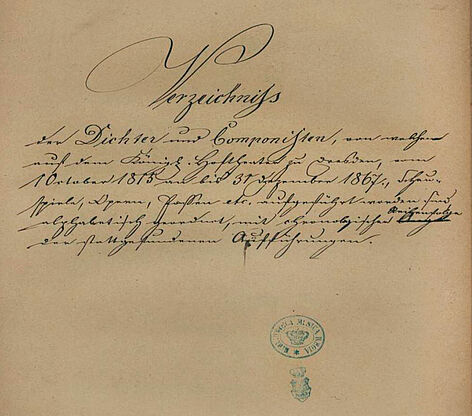 Verzeichniss
der Dichter und Componisten, von welchen
auf dem Königl. Hoftheater zu Dresden, vom
1 October 1815 an bis 31 Dezember 1867, Schau-
spiele, Opern, Possen etc. aufgeführt worden sind,
alphabetisch geordnet, mit chronologischer Reihenfolge
der stattgefundenen Aufführungen.
BIBLIOTHECA MUSICA REGIA